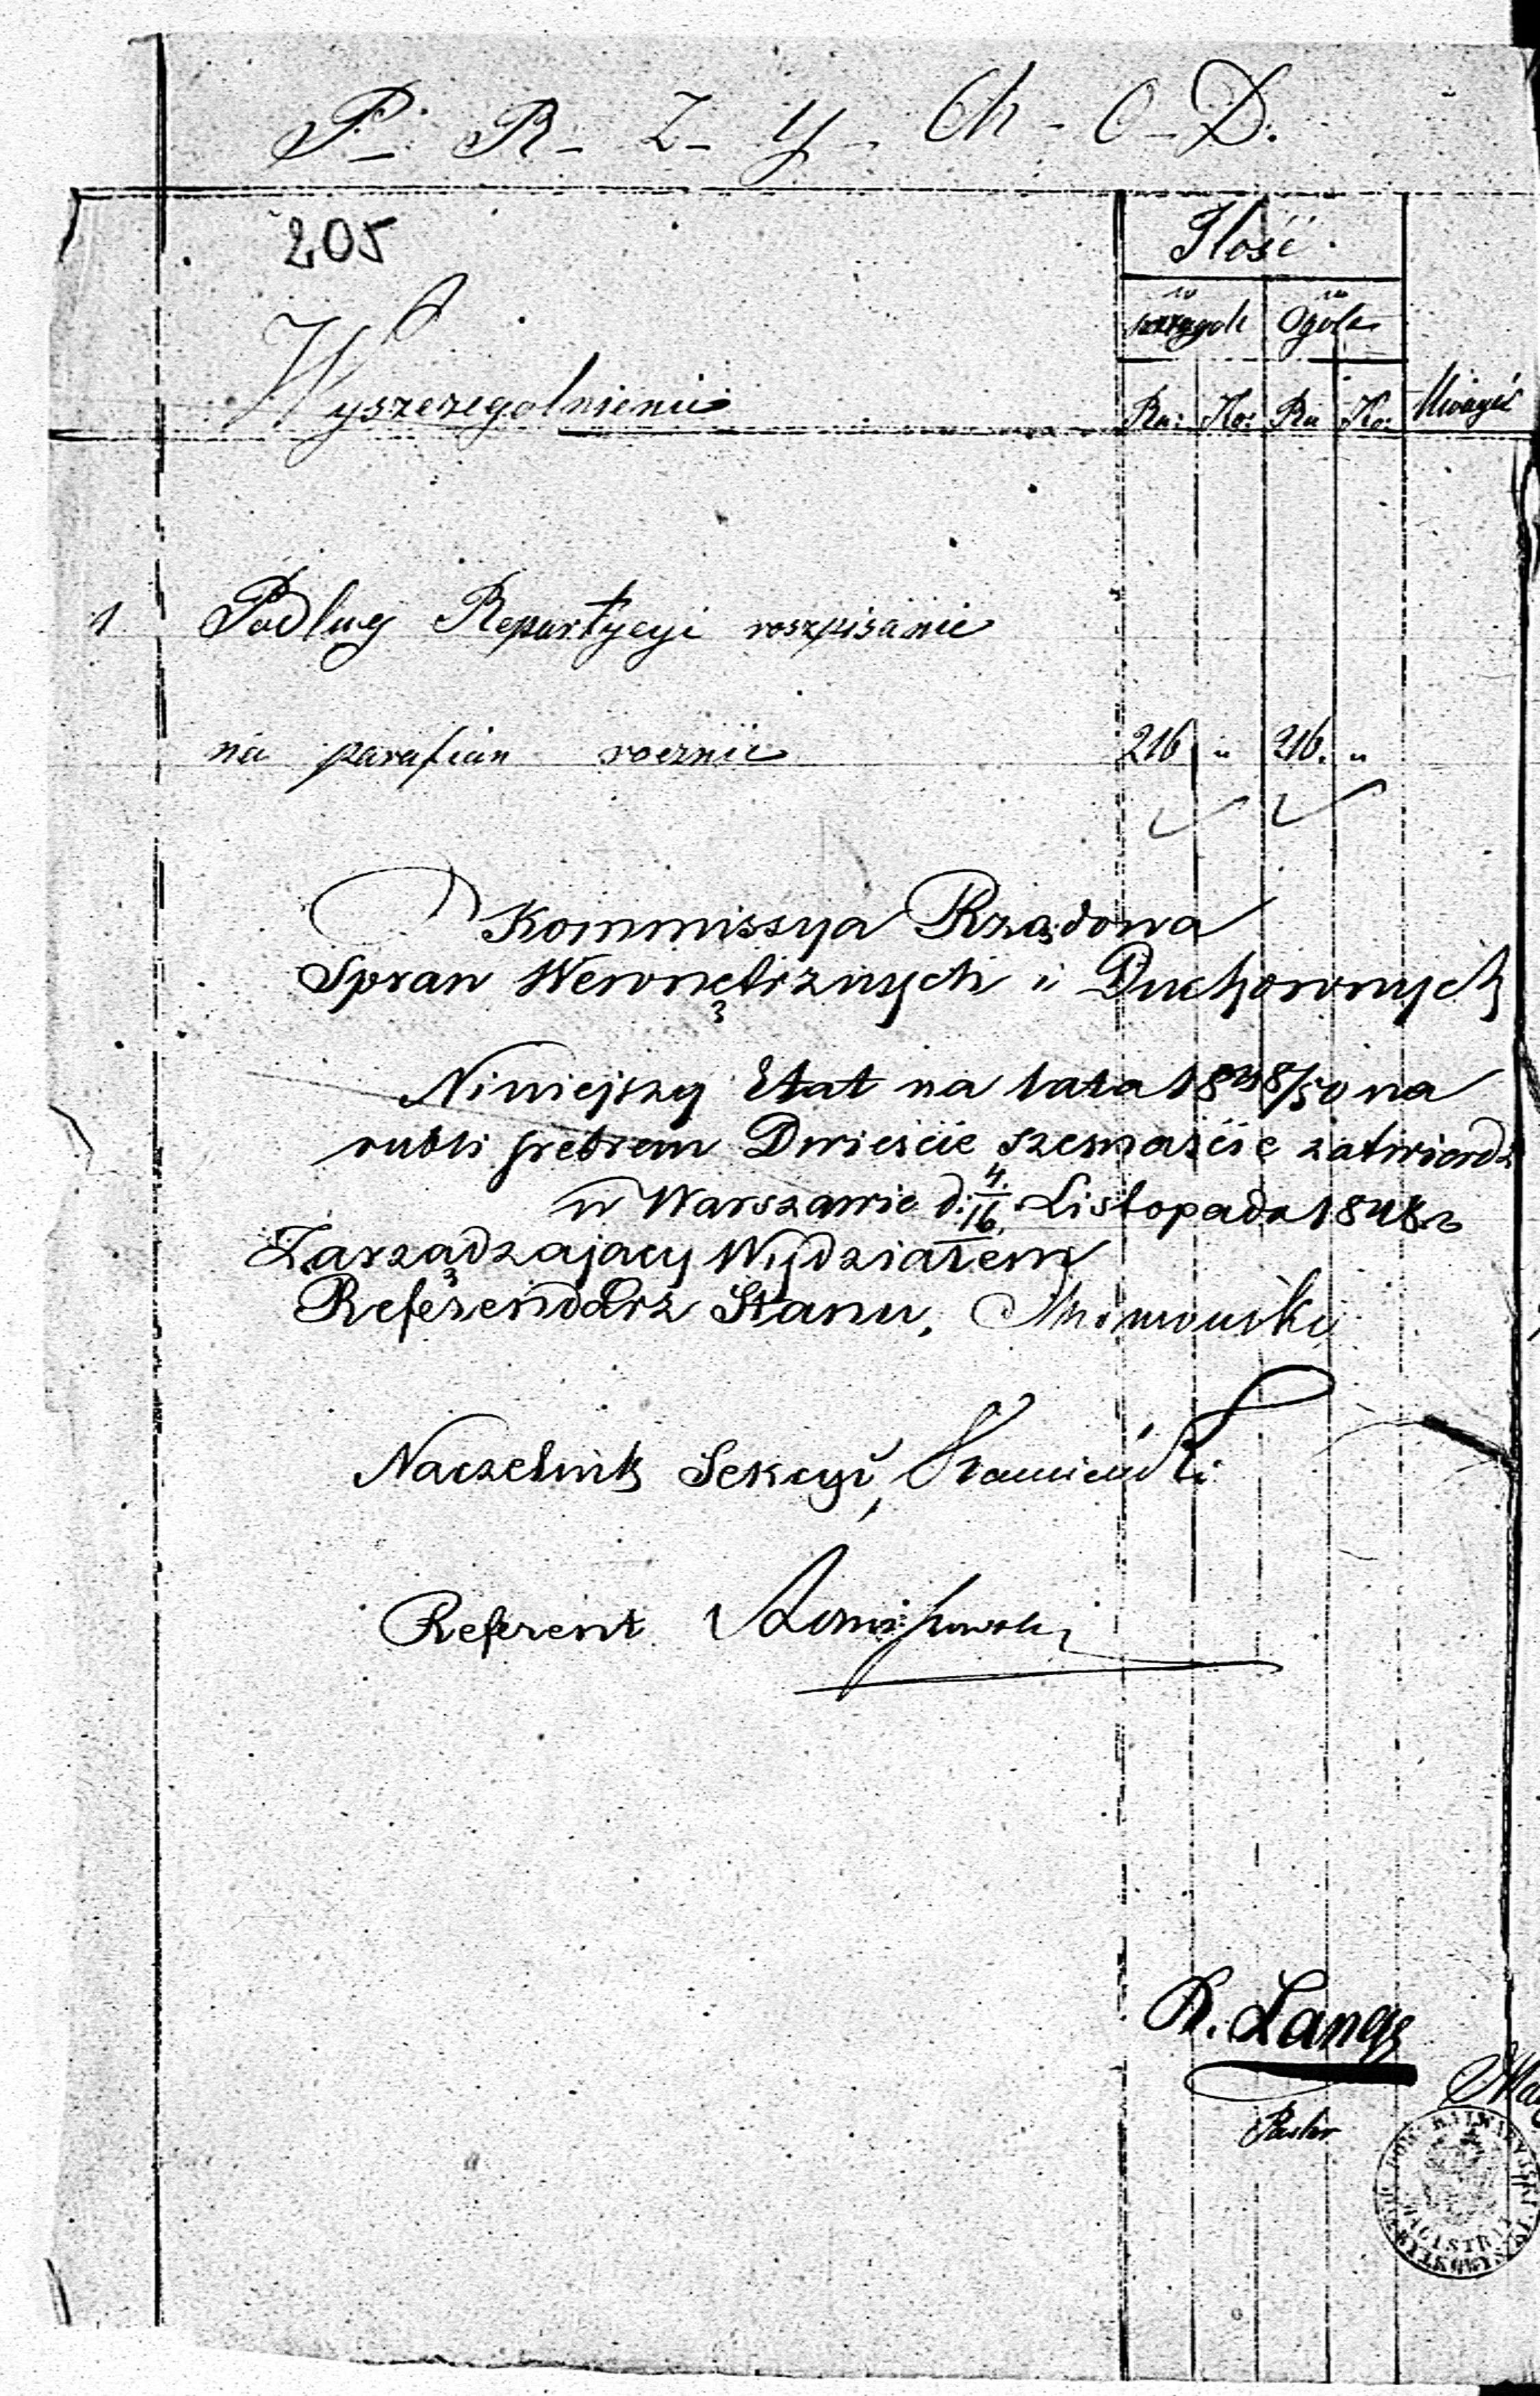 P - R - Z - Y - Ch - O - D.
205
Ilość
w szczegole w Ogóle
Wyszczególnienie
Ru: Ko: Ru Ko:
1 Podług Repartycyi roszpisanie
na parafian rocznie 216 " 216. "
Kommissya Rządowa
Spraw Wewnętrznych i Duchownych
Niniejszy Etat na lata 1848/50 na
rubli srebrem Dwieście szesnaście zatwierdz
w Warszawie d. 4/16 Listopada 1848 r
Zarządzający Wydziałem
Referendarz Stanu,
Naczelnik Sekcyi, Kamieński
Referent
R. Lange
Pastor
MAGISTRAT